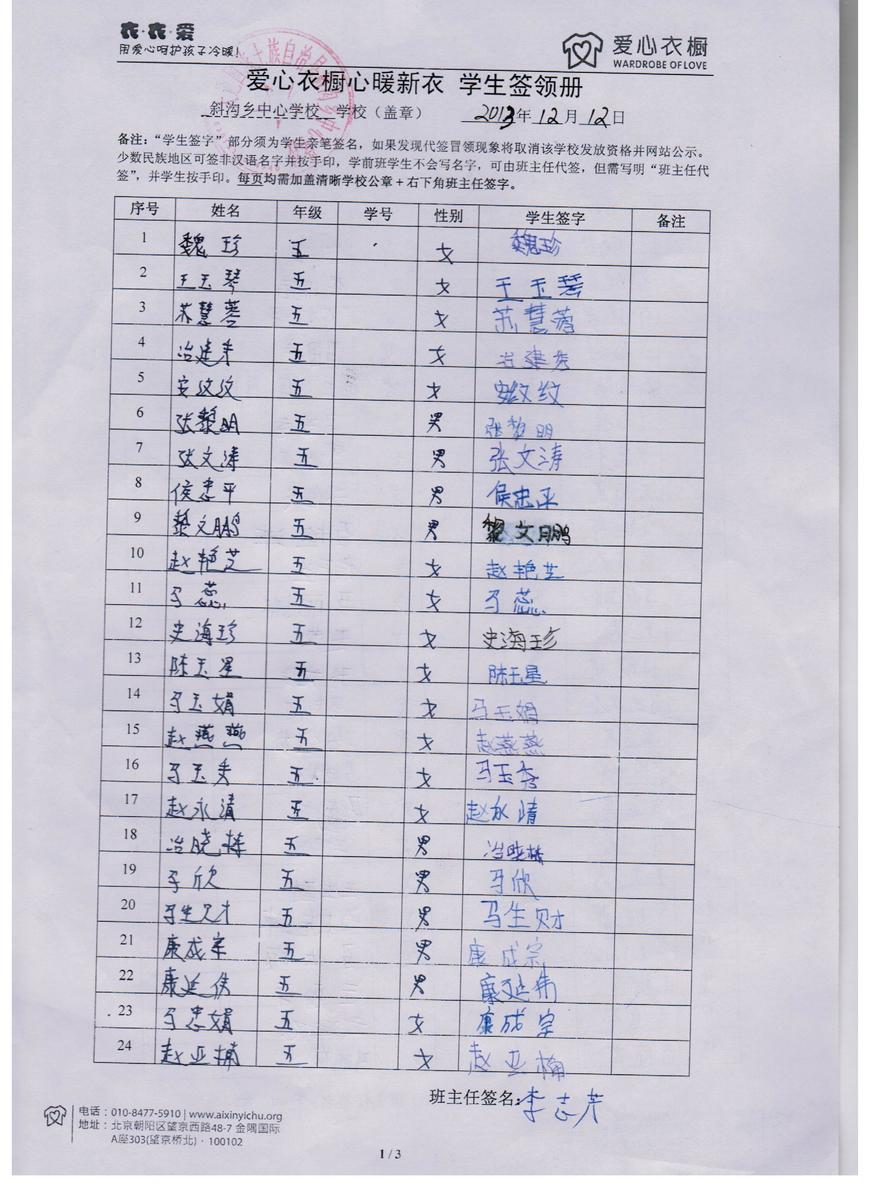 衣·衣·爱
用爱心呵护孩子冷暖!
爱心衣橱
WARDROBE OF LOVE
爱心衣橱心暖新衣 学生签领册
斜沟乡中心学校 学校（盖章） 2013年12月12日
备注：“学生签字”部分须为学生亲笔签名，如果发现代签冒领现象将取消该学校发放资格并网站公示。
少数民族地区可签非汉语名字并按手印，学前班学生不会写名字，可由班主任代签，但需写明“班主任代
签”，并学生按手印。每页均需加盖清晰学校公章+右下角班主任签字。
序号 姓名 年级 学号 性别 学生签字 备注
1 魏珍 五 女 魏珍
2 王玉琴 五 女 王玉琴
3 苏慧蓉 五 女 苏慧蓉
4 冶建秀 五 女 冶建秀
5 安纹纹 五 女 安纹纹
6 张黎明 五 男 张黎明
7 张文涛 五 男 张文涛
8 侯忠平 五 男 侯忠平
9 黎文鹏 五 男 黎文鹏
10 赵艳芝 五 女 赵艳芝
11 马蕊 五 女 马蕊
12 史海珍 五 女 史海珍
13 陈玉星 五 女 陈玉星
14 马玉娟 五 女 马玉娟
15 赵燕燕 五 女 赵燕燕
16 马玉秀 五 女 马玉秀
17 赵永清 五 女 赵永晴
18 冶晓栋 五 男 冶晓栋
19 马欣 五 男 马欣
20 马生财 五 男 马生财
21 康成宗 五 男 康成宗
22 康延伟 五 男 康延伟
23 马忠娟 五 女 康成宗
24 赵亚楠 五 女 赵亚楠
班主任签名:李志芹
电话：010-8477-5910 | www.aixinyichu.org
地址：北京朝阳区望京西路48-7 金隅国际
A座303(望京桥北)·100102
1 / 3